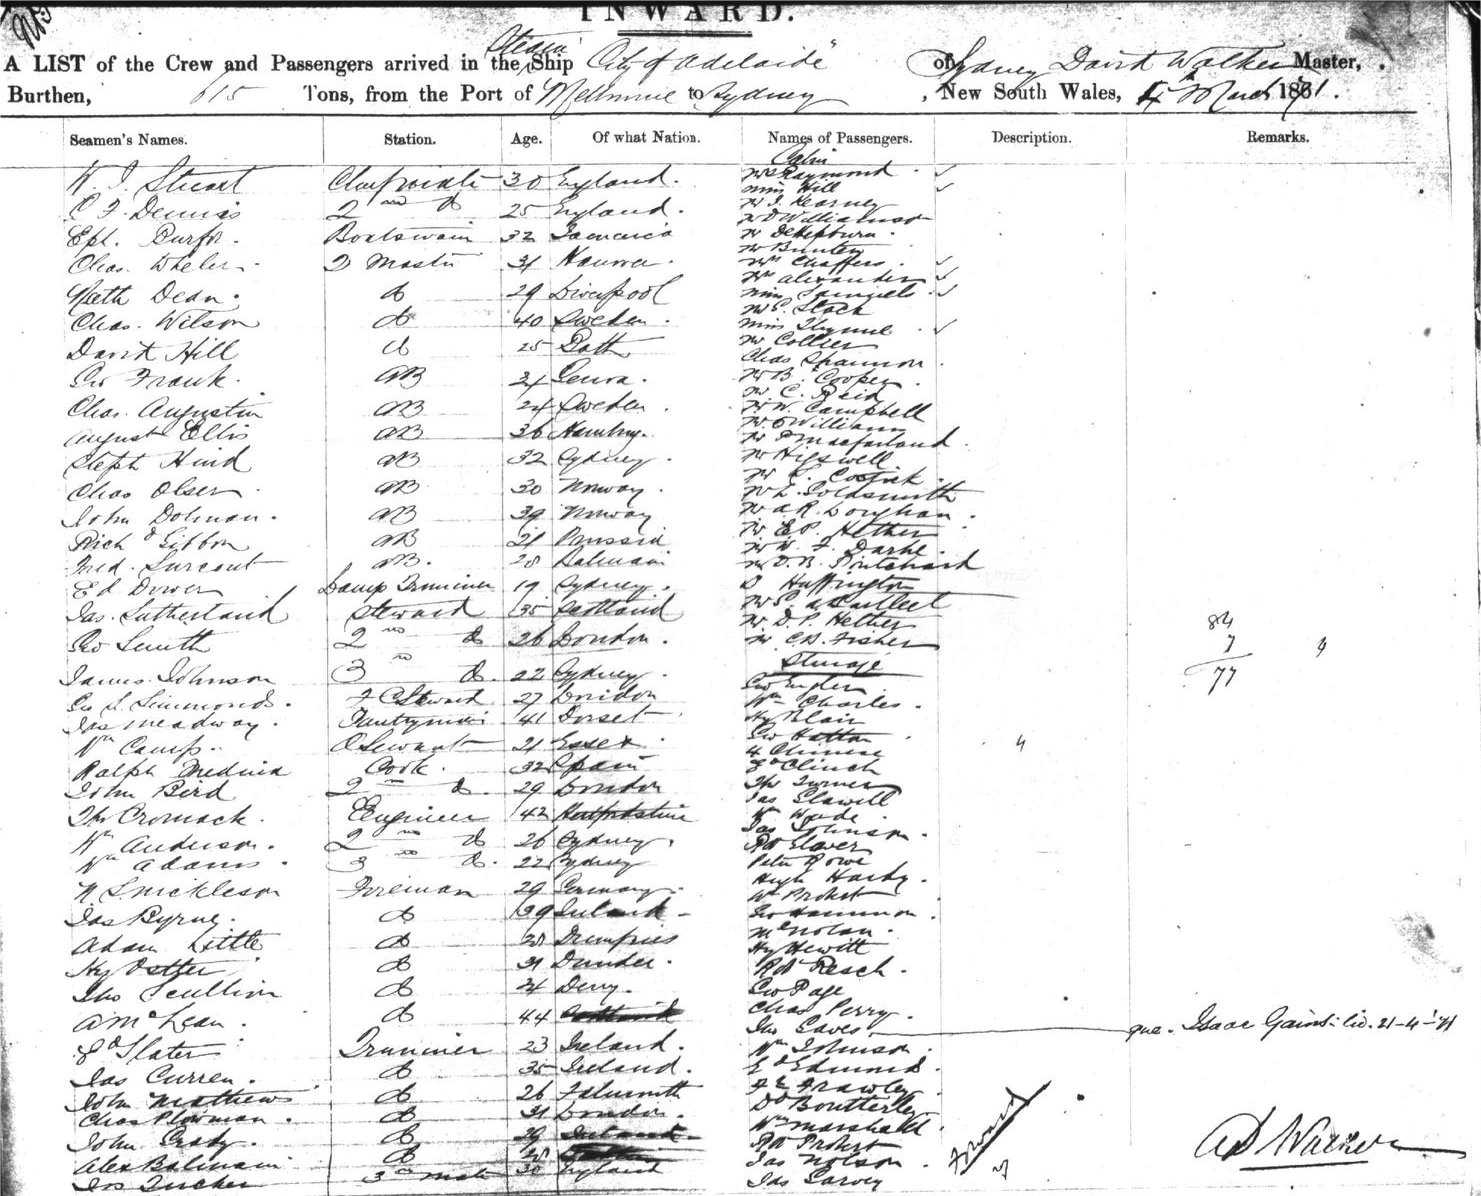 INWARD.
A LIST of the Crew and Passengers arrived in the Steam Ship "City of Adelaide" of Sydney David Walker Master,
Burthen, 615 Tons, from the Port of Melbourne to Sydney, New South Wales, March 1871.
Seamen's Names. Station. Age. Of what Nation. Names of Passengers. Description. Remarks.
Cabin
W. J. Stuart Chief mate 30 England. Mrs Raymond
Miss Hill
C F. Dennis 2nd do 25 England. Mr J. Kearney
Mr D Williamson
Boatswain 32 Jamaica Mr Hepburn
Mr Bunten
Chas. Wheler Q Master 31 Hanover. Mrs Chaffers
Mrs Alexander
Dean. do 29 Liverpool Miss Samuels
Mr Stack
Chas. Wilson do 40 Sweden. Miss
Mr Collier
David Hill do 25 Bath Chas Shannon.
Geo Frank. AB 34 Genoa. Mr B. Cooper
Mr C. Reid
Chas. Augustin AB 24 Sweden. Mr W. Campbell
August Ellis AB 36 Hamburg. Mr Williams
Mr Macfarland
Steph Hind AB 32 Sydney. Mr
Chas Olsen AB 30 Norway. Mr L. Goldsmith
John Dolman. AB 39 Norway Mr A R.
Mr E P. Hether
Richd Gibbon AB 21 Prussia Mr W. F. Darke.
Fred. Surcout AB. 28 Balmain Mr D. B. Pritchard
Ed Dower Lamp Trimmer 19 Sydney. D Huffington
Jas. Sutherland Steward 35 Scotland Mr
Mr D. P. Hether
84
Geo Smith 2nd do 26 London. Mr C B. Fisher
7 4
Steerage
77
James Johnson 3rd do. 22 Sydney. Geo
Geo S. Simmonds. F C Steward 27 London Wm Charles.
Jas Meadway. Pantryman 41 Dorset. Hy Blair
Geo Hatton
Wm Camp. 21 Essex. 4 Chinese 4
Ralph Medina Cook. 32 Spain Ed Clinch
John Bird 2nd do. 29 London Thos Turner
Jas
Thos Cromack. Engineer 42 Hertfordshire Wm Wade.
Jas Johnson.
Wm Anderson. 2nd do 26 Sydney. Rd
Wm Adams. 3rd do. 22 Sydney Peter Rowe
Hugh Hardy.
N. Snickleson Fireman 29 Germany. Wm Probst
Jas Byrne. do 39 Ireland Geo Hammon.
McNolan.
Adam Little do 38 Dumfries Hy Hewitt
Hy do 31 Dundee. Rd Resch.
Thos Scullion do 34 Derry. Geo Page
Chas Perry.
A McLean. do 44 Scotland Jno Eaves que. Isaac Gains: lic. 21-4-71
Ed Slater Trimmer 23 Ireland. Wm Johnson.
Jas Curren. do 35 Ireland. Ed Edmonds
John Mathews do 26 Falmouth F E Frawley
Chas Plowman. do 31 London. Dd Boutterley
Wm Marshall
John Grady. do 29 Ireland Rd Probst
Alex Balmain do 28 Jas Nolson. Forward
Jos Tucker 3rd mate 30 England Jas Garvey